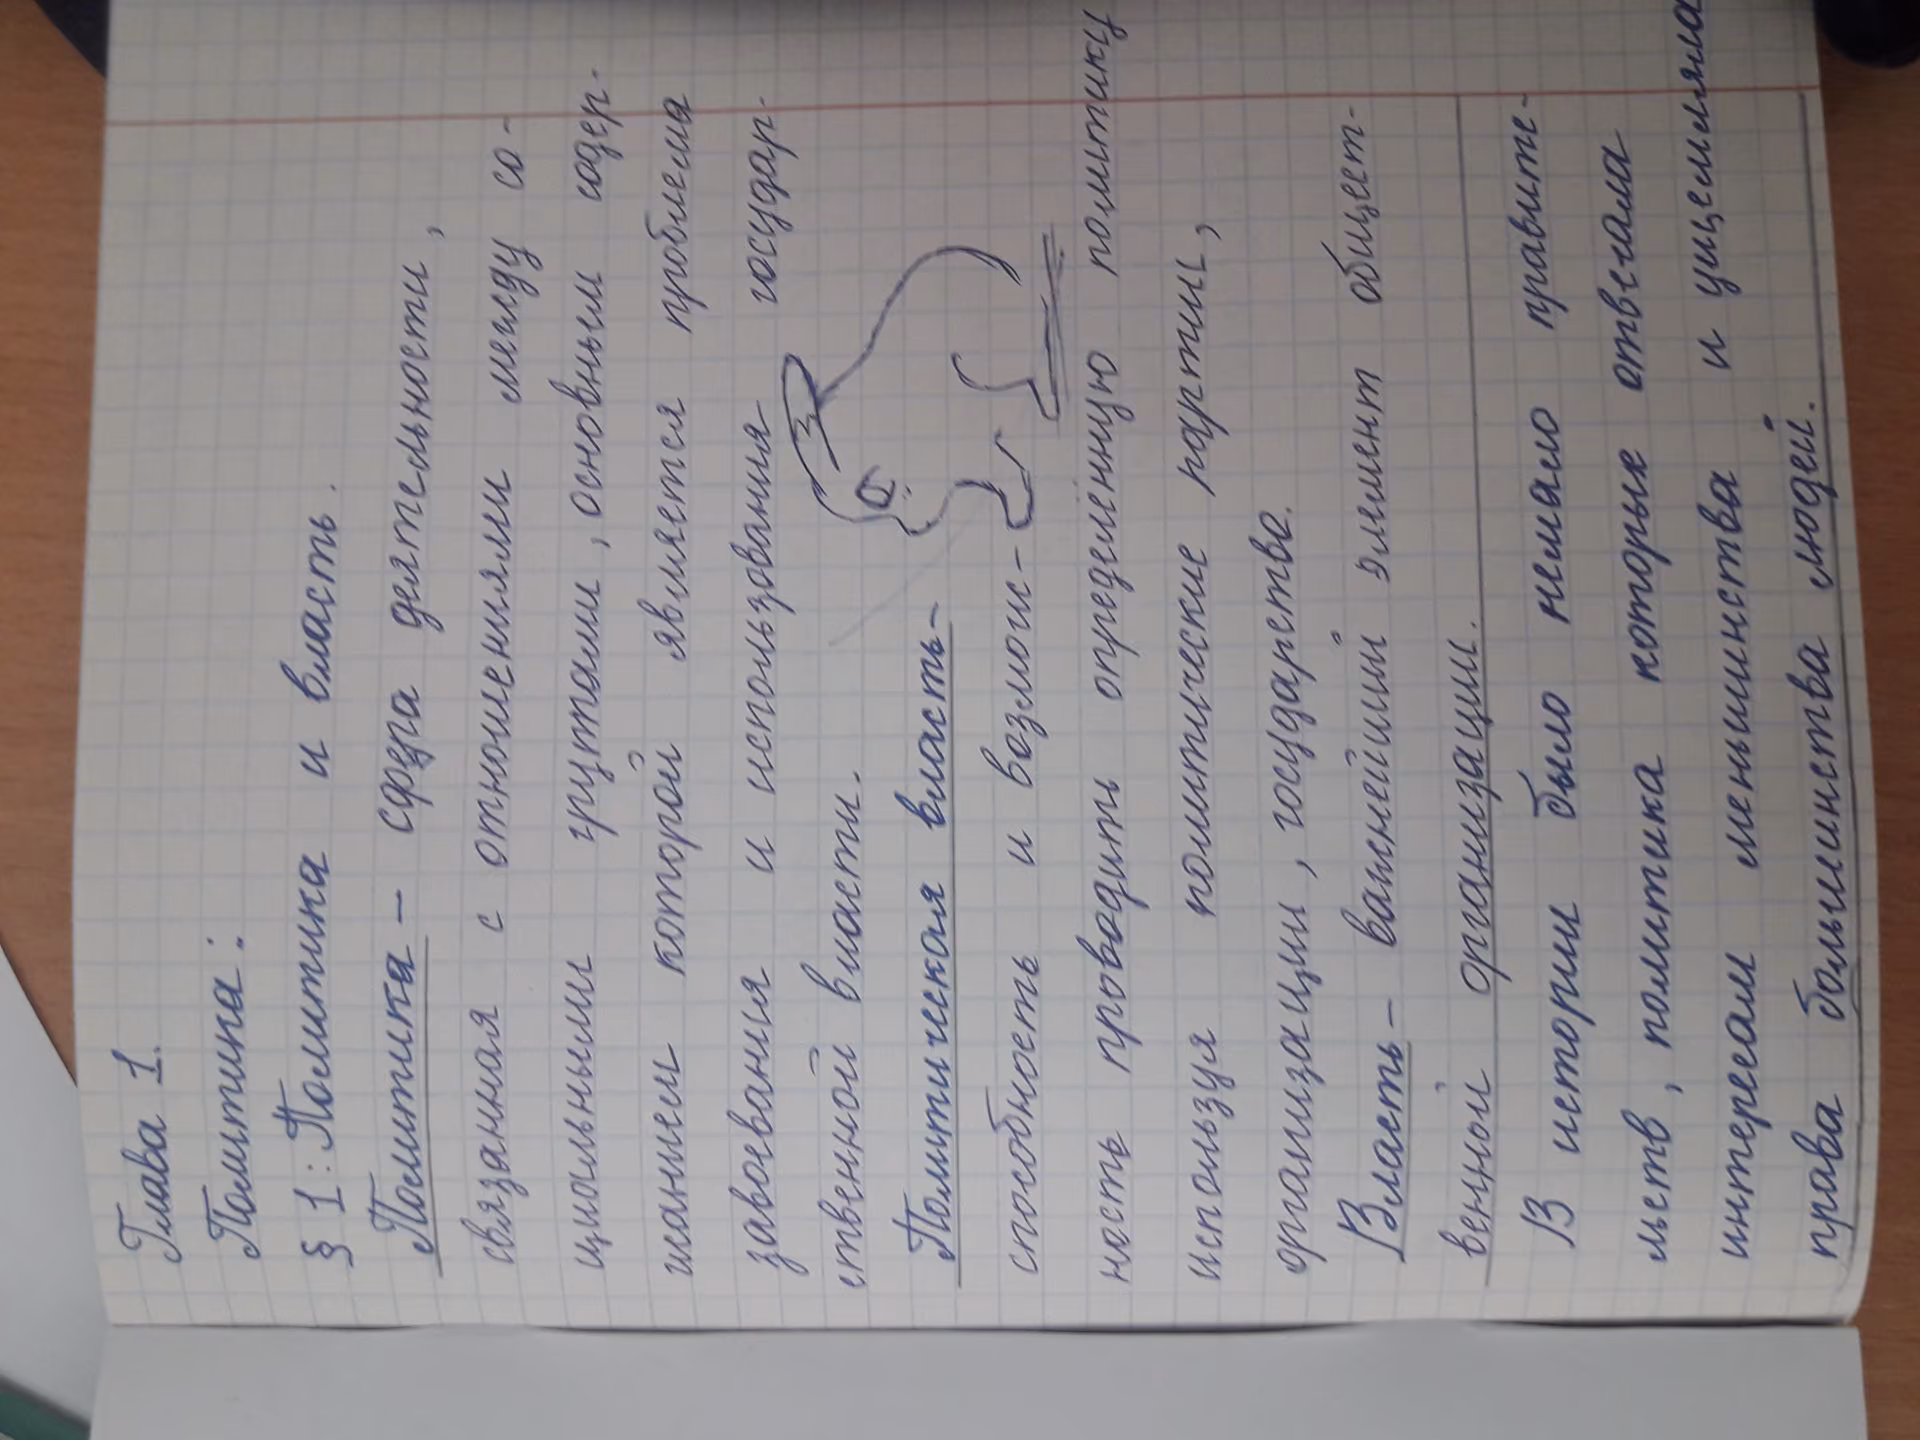 Глава 1.
Политика:
§ 1: Политика и власть.
Политика - сфера деятельности,
связанная с отношениями между со-
циальными группами, основным содер-
жанием которой является проблема
завоевания и использования государ-
ственной власти.
Политическая власть-
способность и возмож-
ность проводить определенную политику
используя политические партии,
организации, государство.
Власть - важнейший элемент общест-
венной организации.
В истории было немало правите-
льств, политика которые отвечала
интересам меньшинства и ущемляла
права большинства людей.